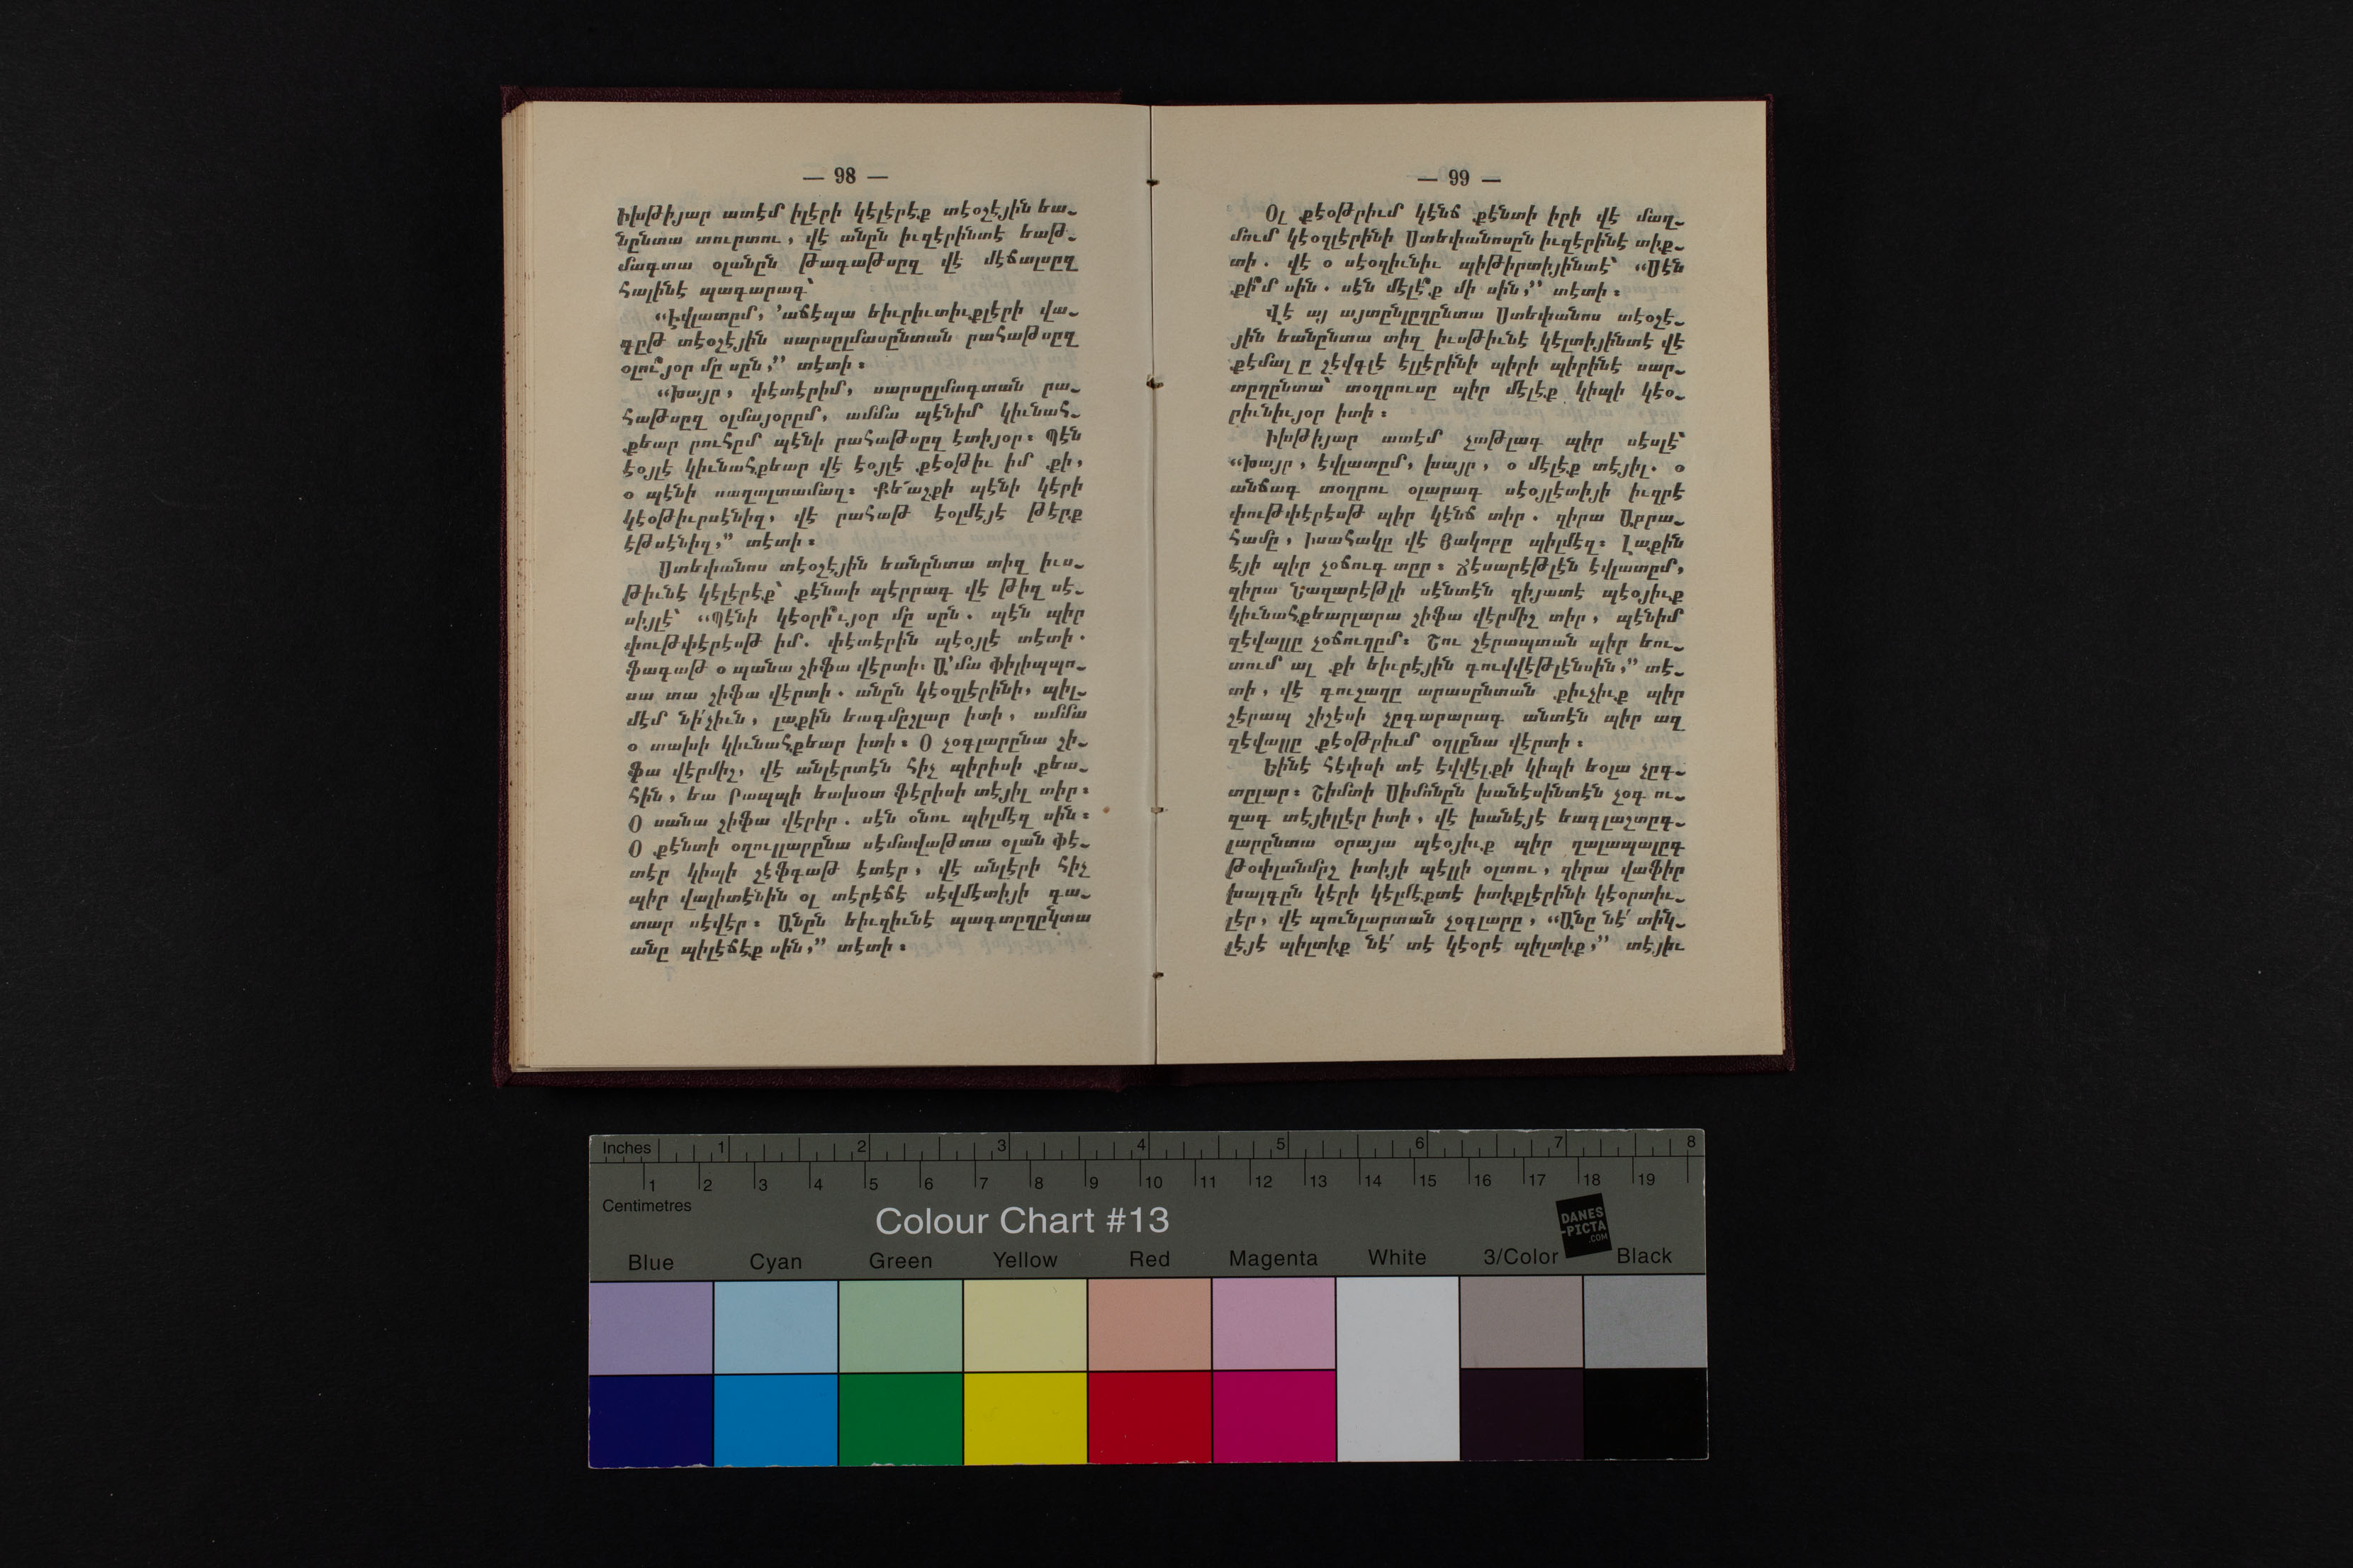 — 98 —
Իխթիյար ատէմ իլէրի կէլէրէք տէօշէյին եա֊
նընտա տուրտու, վէ անըն իւզէրինտէ եաթ֊
մագտա օլանըն թագաթսըզ վէ մէճալսըզ
հալինէ պագարագ՝
“Էվլատըմ, ’աճէպա եիւրիւտիւքլէրի վա֊
գըթ տէօշէյին սարսըլմասընտան րահաթսըզ
օլու՞յօր մը սըն,” տէտի։
“Խայր, փէտէրիմ, սարսըլմագտան րա֊
հաթսըզ օլմայօրըմ, ամմա պէնիմ կիւնահ֊
քեար րուհըմ պէնի րահաթսըզ էտիյօր։ Պէն
էօյլէ կիւնահքեար վէ էօյլէ քէօթիւ իմ քի,
օ պէնի սաղալտամազ։ Քե՜աշքի պէնի կէրի
կէօթիւրսէնիզ, վէ րահաթ էօլմէյէ թէրք
էթսէնիզ,” տէտի։
Ստեփանոս տէօշէյին եանընտա տիզ իւս֊
թիւնէ կէլէրէք՝ քէնտի պէրրագ վէ թիզ սէ֊
սիյլէ՝ “Պէնի կէօրի՞ւյօր մը սըն. պէն պիր
փութփէրէսթ իմ. փէտէրին պէօյլէ տէտի.
ֆագաթ օ պանա շիֆա վէրտի։ Ա՛մա Փիլիպպո֊
սա տա շիֆա վէրտի. անըն կէօզլէրինի, պիլ֊
մէմ նի՛չիւն, լաքին եագմըշլար իտի, ամմա
օ տախի կիւնահքեար իտի։ Օ չօգլարընա շի֊
ֆա վէրմիշ, վէ անլէրտէն հիչ պիրիսի քեա֊
հին, եա Րապպի եախօտ ֆէրիսի տէյիլ տիր։
Օ սանա շիֆա վէրիր. սէն օնու պիլմէզ սին։
Օ քէնտի օղուլլարընա սէմավաթտա օլան ֆէ֊
տէր կիպի շէֆգաթ էտէր, վէ անլէրի հիչ
պիր վալիտէնին օլ տէրէճէ սէվմէտիյի գա֊
տար սէվէր։ Անըն եիւզիւնէ պագտըղընտա
անը պիլէճէք սին,” տէտի։
— 99 —
Օլ քէօթրիւմ կէնճ քէնտի իրի վէ մաղ֊
մում կէօզլէրինի Ստեփանոսըն իւզէրինէ տիք֊
տի. վէ օ սէօզիւնիւ պիթիրտիյինտէ՝ “Սէն
քի՞մ սին. սէն մէլէ՞ք մի սին,” տէտի։
Վէ այ այտընլըղընտա Ստեփանոս տէօշէ֊
յին եանընտա տիզ իւսթիւնէ կէլտիյինտէ վէ
քէմալ ը շէվգլէ էլլէրինի պիրի պիրինէ սար֊
տըղընտա՝ տօղրուսը պիր մէլէք կիպի կէօ֊
րիւնիւյօր իտի։
Իխթիյար ատէմ չաթլագ պիր սէսլէ՝
“Խայր, էվլատըմ, խայր, օ մէլէք տէյիլ. օ
անճագ տօղրու օլարագ սէօյլէտիյի իւզրէ
փութփէրէսթ պիր կէնճ տիր. զիրա Աբրա֊
համը, Իսահակը վէ Յակոբը պիլմէզ։ Լաքին
էյի պիր չօճուգ տըր։ Ճէսարէթլէն էվլատըմ,
զիրա Նազարէթլի սէնտէն զիյատէ պէօյիւք
կիւնահքեարլարա շիֆա վէրմիշ տիր, պէնիմ
զէվալլը չօճուղըմ։ Շու շէրապտան պիր եու֊
տում ալ քի եիւրէյին գուվվէթլէնսին,” տէ֊
տի, վէ գուշաղը արասընտան քիւչիւք պիր
շէրապ շիշէսի չըգարարագ անտէն պիր ազ
զէվալլը քէօթրիւմ օղլընա վէրտի։
Եինէ հէփսի տէ էվվէլքի կիպի եօլա չըգ֊
տըլար։ Շիմտի Սիմոնըն խանէսինտէն չօգ ու֊
զագ տէյիլլէր իտի, վէ խանէյէ եագլաշտըգ֊
լարընտա օրայա պէօյիւք պիր ղալապալըգ
թօփլանմըշ իտիյի պէլլի օլտու, զիրա վաֆիր
խալգըն կէրի կէլմէքտէ իտիքլէրինի կէօրտիւ֊
լէր, վէ պունլարտան չօգլարը, “Անը նէ՛ տինկ֊
լէյէ պիլտիք նէ՛ տէ կէօրէ պիլտիք,” տէյիւ
Inches 1 2 3 4 5 6 7 8
1 2 3 4 5 6 7 8 9 10 11 12 13 14 15 16 17 18 19
Centimetres
Colour Chart #13
DANES
-PICTA
.COM
Blue Cyan Green Yellow Red Magenta White 3/Color Black